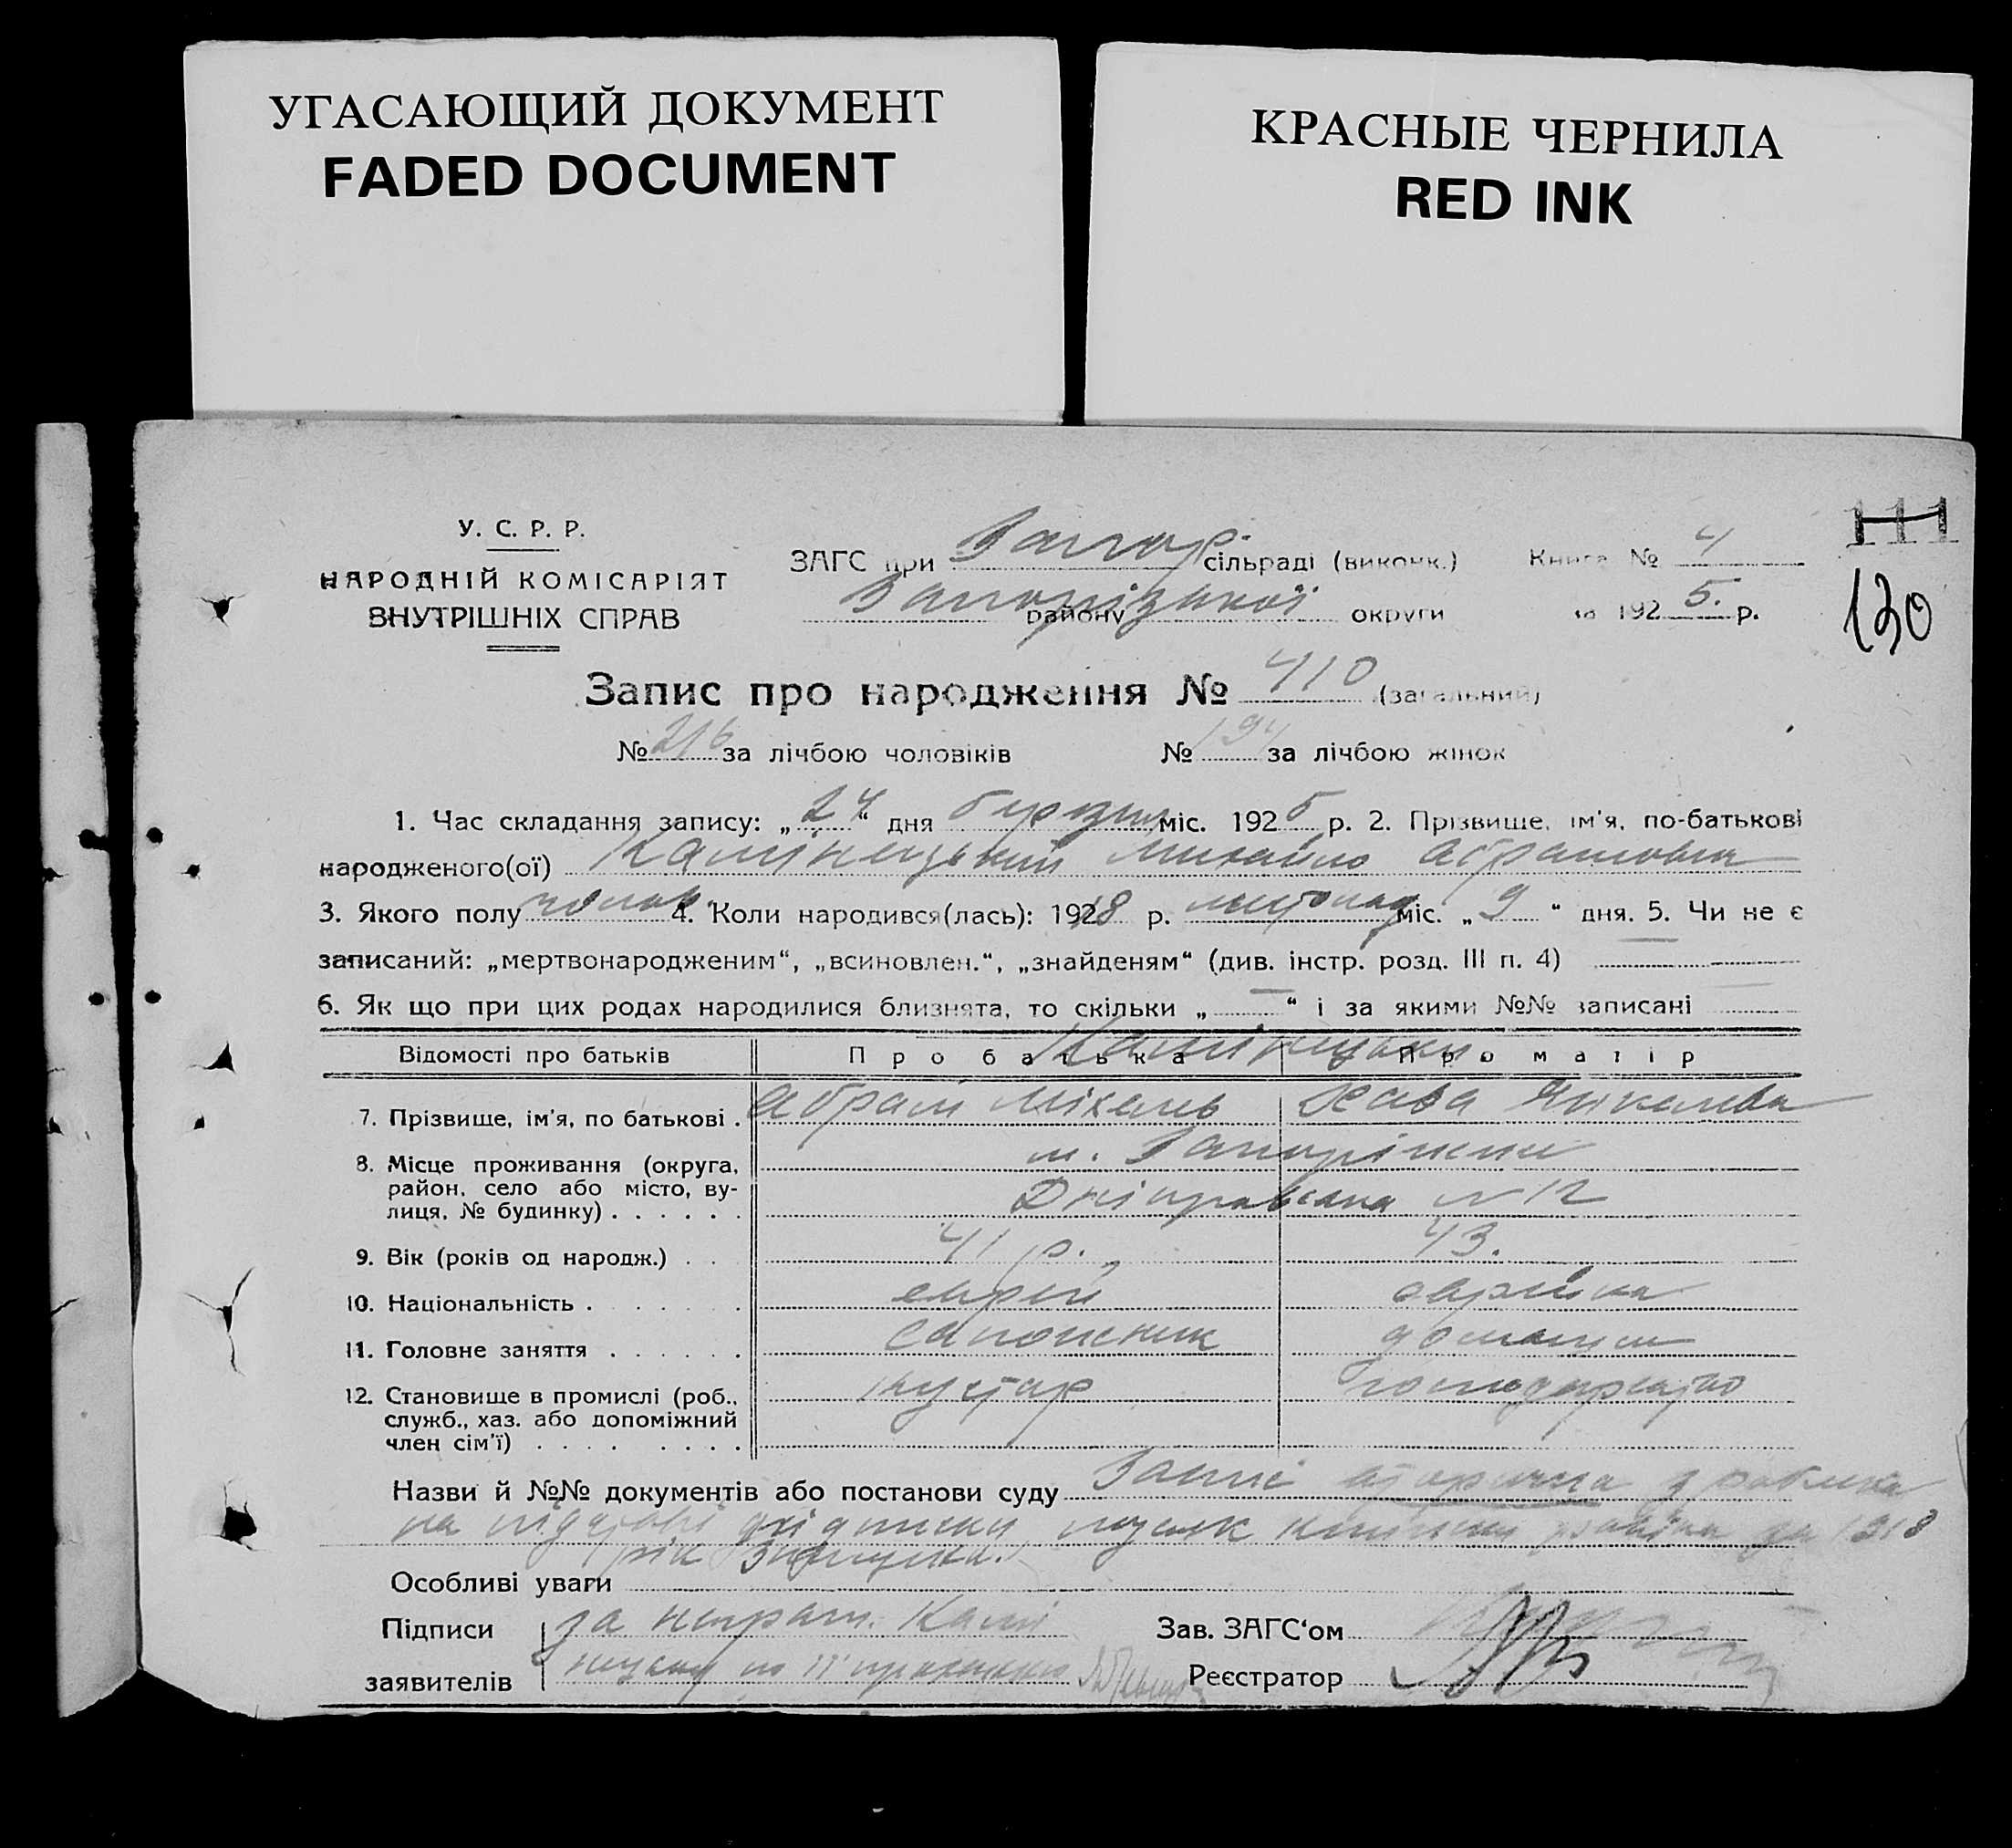 УГАСАЮЩИЙ ДОКУМЕНТ
FADED DOCUMENT
КРАСНЫЕ ЧЕРНИЛА
RED INK
111
130
У. С. Р. Р.
НАРОДНІЙ КОМІСАРІЯТ
ВНУТРІШНІХ СПРАВ
ЗАГС при Запор. сільраді (виконк.) Книга № 4
Запорізької району округи за 1925. р.
Запис про народження № 410 (загальний)
№ 216 за лічбою чоловіків № 194 за лічбою жінок
1. Час складання запису: „24“ дня березня міс. 1925 р. 2. Прізвище, ім'я, по-батькові
народженого(ої) Камінецький Михайло Абрамович
3. Якого полу чолов. 4. Коли народився(лась): 1918 р. листопад міс. „9“ дня. 5. Чи не є
записаний: „мертвонародженим“, „всиновлен.“, „знайденям“ (див. інстр. розд. III п. 4)
6. Як що при цих родах народилися близнята, то скільки „ “ і за якими №№ записані
Відомості про батьків Про батька Про матір
Камінецьки
7. Прізвище, ім'я, по батькові . Абрам Міхель Хава Янкелевна
8. Місце проживання (округа, м. Запоріжжя
район, село або місто, ву-
лиця, № будинку) . . . . . . Дніпровська № 12
9. Вік (років од народж.) . . . 41 р. 43.
10. Національність . . . . . . . еврей еврейка
11. Головне заняття . . . . . . сапожник домашнє
12. Становище в промислі (роб., кустар господарство
служб., хаз. або допоміжний
член сім'ї) . . . . . . . .
Назви й №№ документів або постанови суду Запис вторична зроблена
на підставі книги за 1918
рік
Особливі уваги
Підписи за неграм. Камі
заявителів нецьку по її проханню
Зав. ЗАГС‘ом
Реєстратор